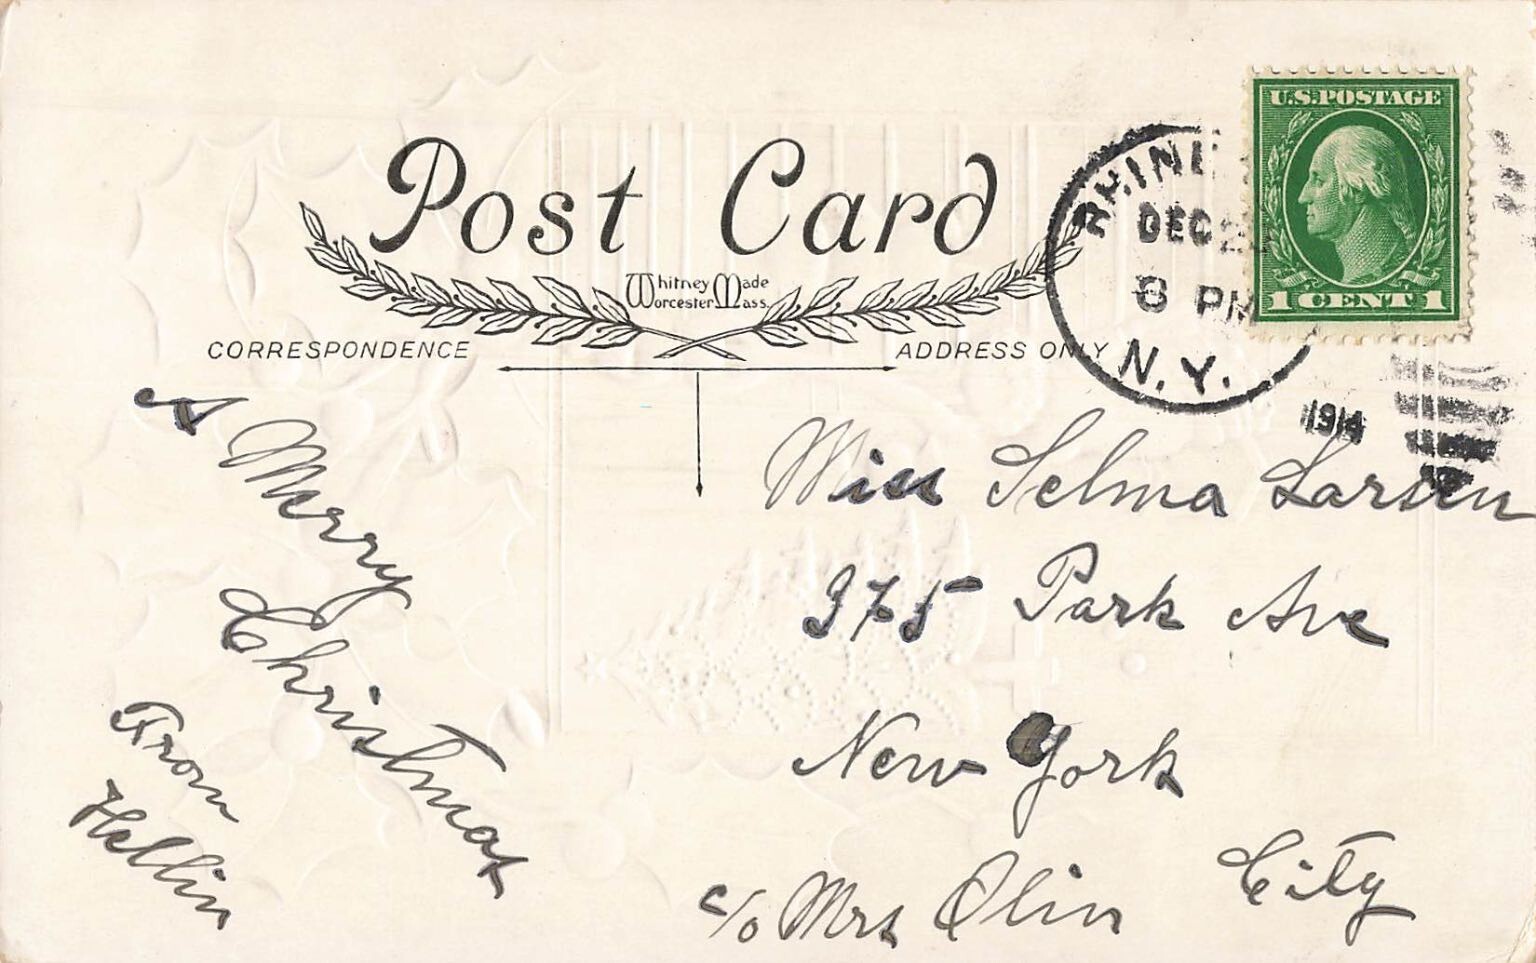 Post Card
Whitney Made
Worcester Mass.
CORRESPONDENCE
ADDRESS ONLY
U.S. POSTAGE
1 CENT 1
DEC
8 PM
N.Y.
1914
A Merry
Christmas
From
Hellin
Miss Selma Larsen
375 Park Ave
New York
City
c/o Mrs Olin